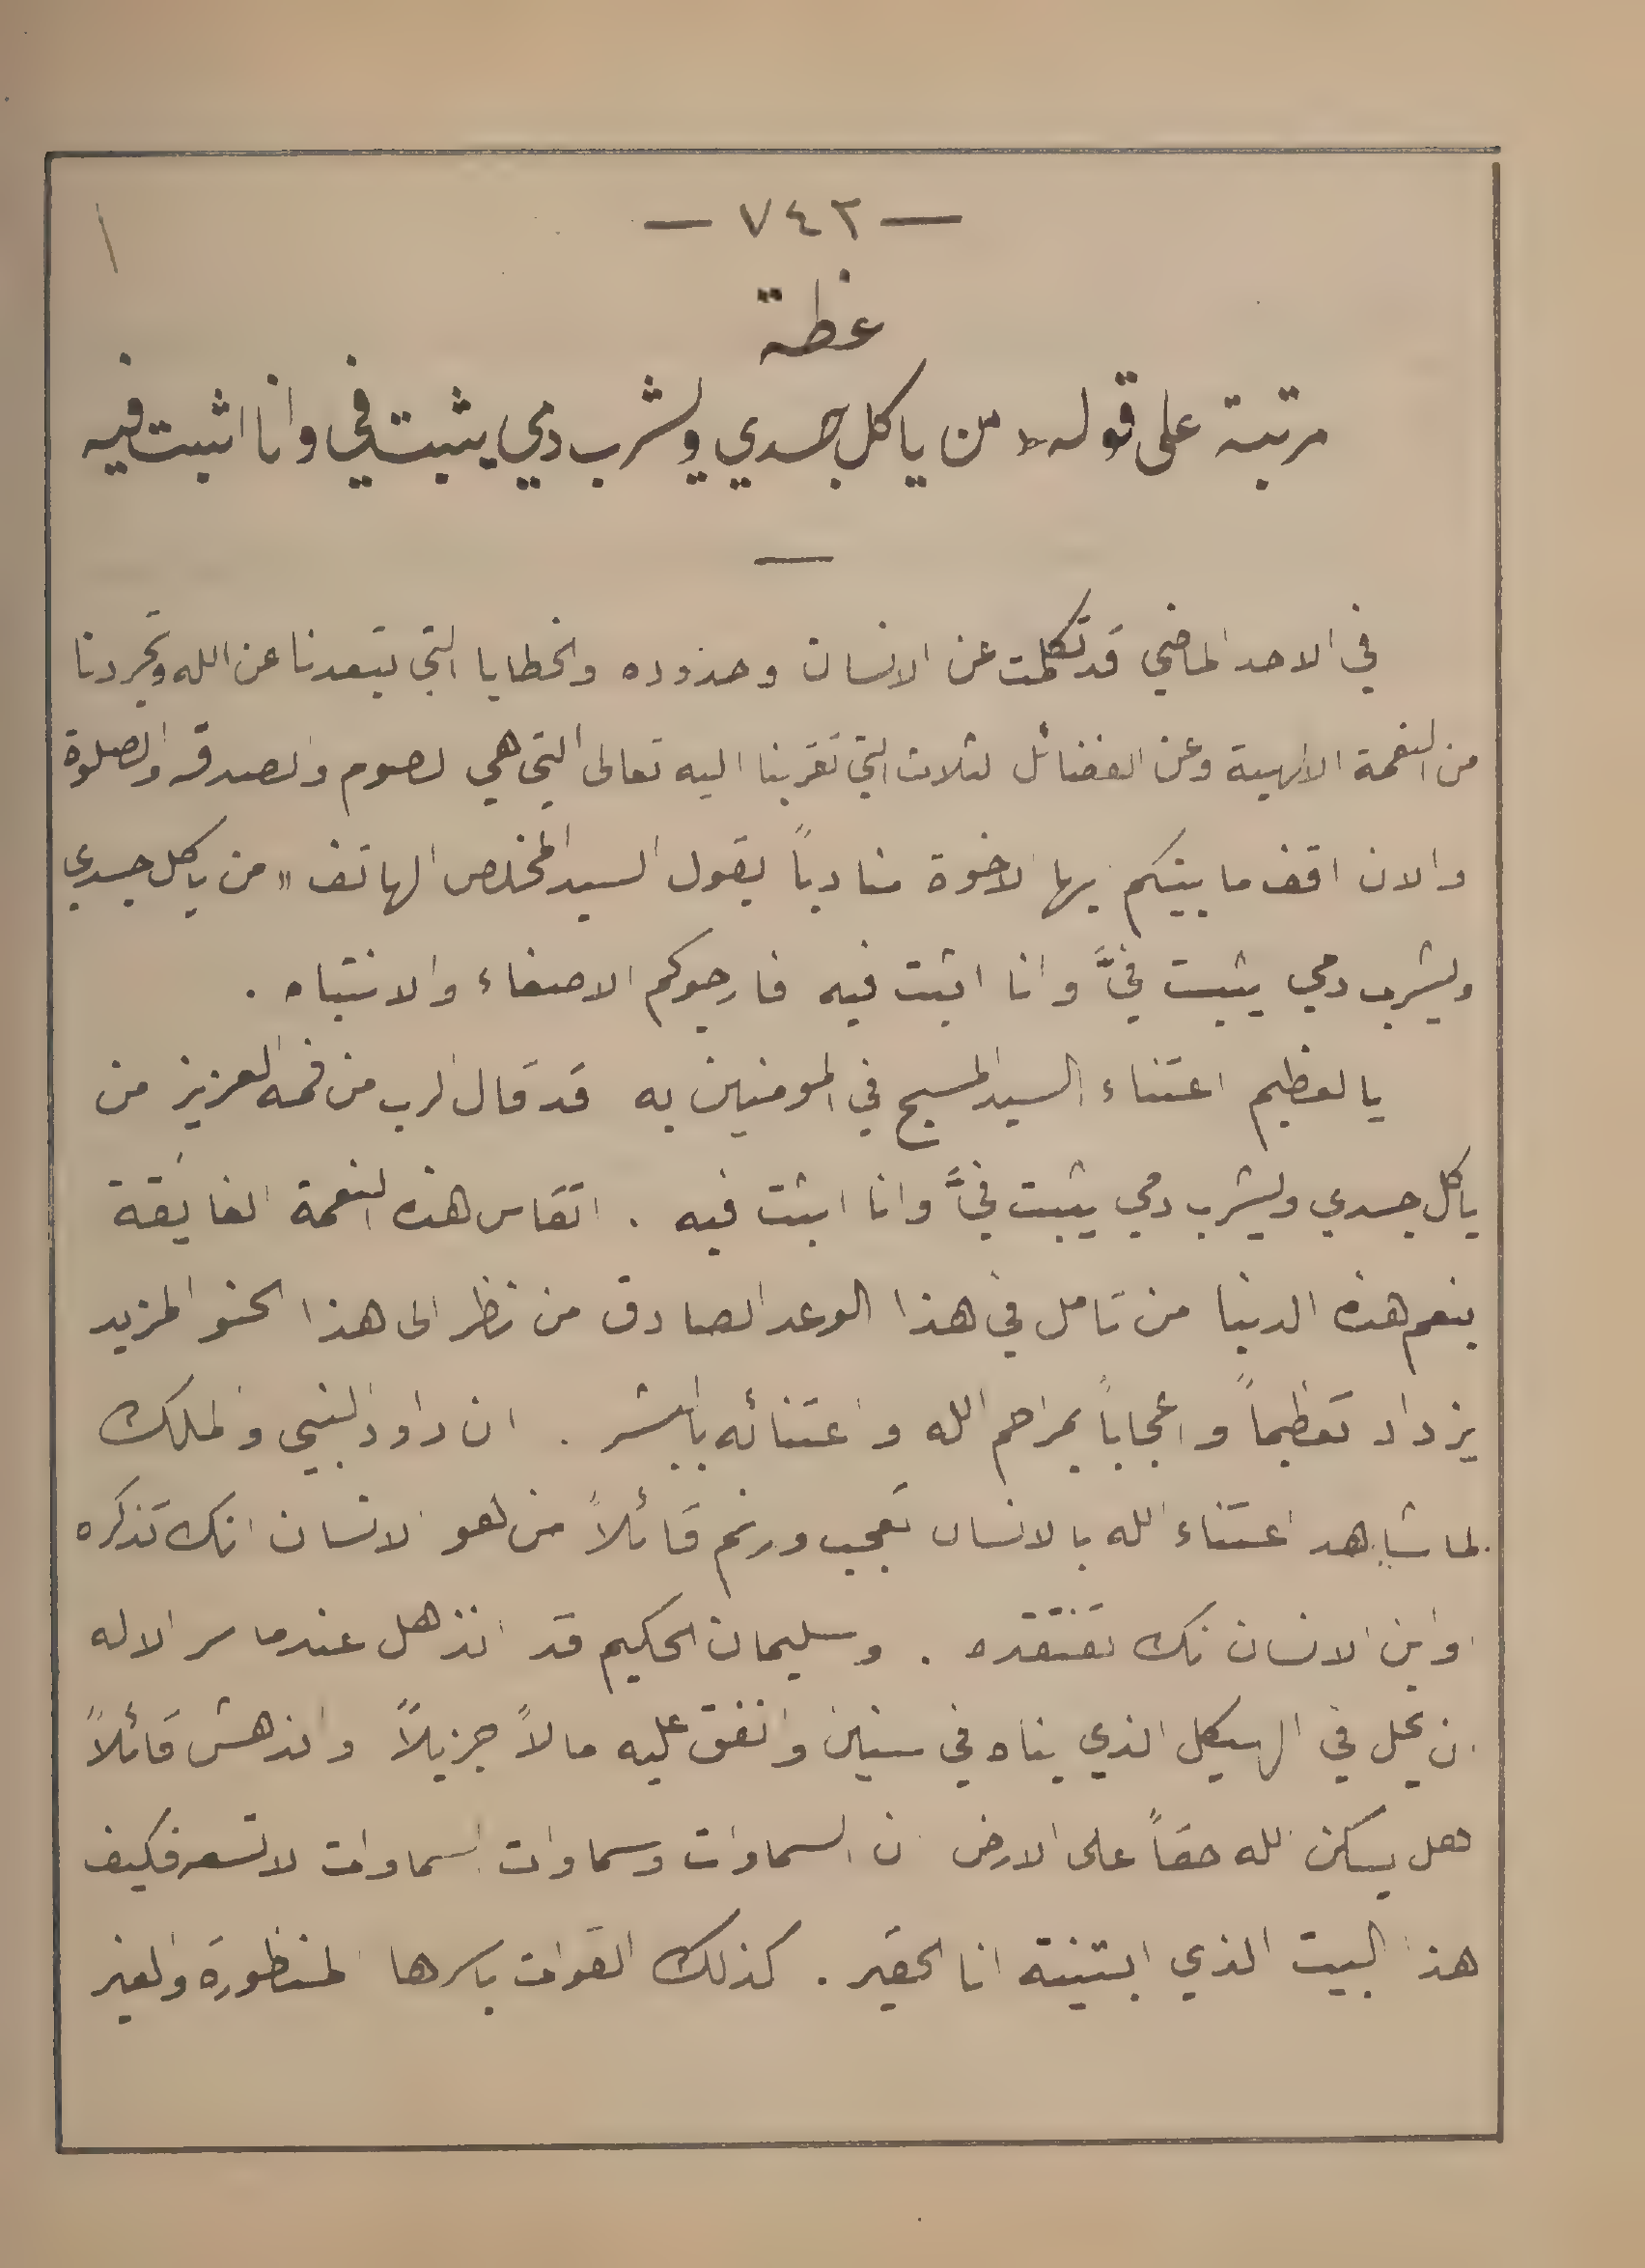 — ٧٤٢ —
عظة
مرتبة على قوله « من ياكل جسدي ويشرب دمي يثبت في وانا اثبت فيه
في الاحد الماضي قد تكلمت عن الانسان وحذوده والخطايا التي تبعدنا عن الله وتجردنا
من النعمة الالهية وعن الفضائل الثلاث التي تقربنا اليه تعالى التي هي الصوم والصدقه والصلوة
والان اقف ما بينكم ايها الاخوة منادياً بقول السيد المخلص الهاتف " من ياكل جسدي
ويشرب دمي يثبت فيَّ وانا اثبت فيه فارجوكم الاصغاء والانتباه .
يا لعظيم اعتناء السيد المسيح في المومنين به قد قال الرب من فمه العزيز من
ياكل جسدي ويشرب دمي يثبت فيَّ وانا اثبت فيه . اتقاس هذه النعمة الفايقة
بنعم هذه الدنيا من تامل في هذا الوعد الصادق من نظر الى هذا الحنو المزيد
يزداد تعظيماً واعجاباً بمراحم الله واعتنائه بالبشر . ان داود النبي والملك
لما شاهد اعتناء الله بالانسان تعجب ورنم قائلاً من هو الانسان انك تذكره
او ابن الانسان انك تفتقده . وسليمان الحكيم قد انذهل عندما سر الاله
ان يحل في الهيكل الذي بناه في سنين وانفق عليه مالاً جزيلاً واندهش قائلاً
هل يسكن الله حقاً على الارض ان السماوات وسماوات السماوات لا تسعه فكيف
هذا البيت الذي ابتنيته انا الحقير . كذلك القوات باسرها المنظورة والغير